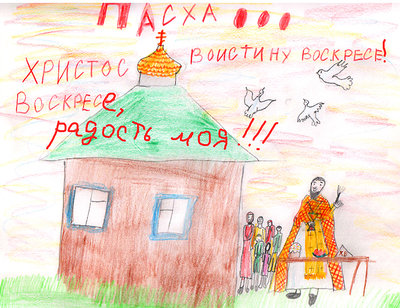 ПАСХА!!!
ХРИСТОС
ВОСКРЕСЕ,
радость моя!!!
ВОИСТИНУ ВОСКРЕСЕ!